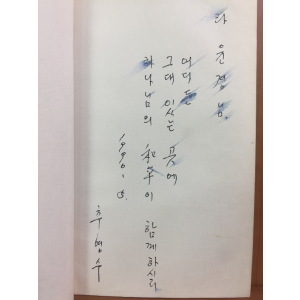 라 운 경 님.
어디든
그대 있는 곳에
하나님의 和平이 함께하시라
1990. 6.
추 영 수